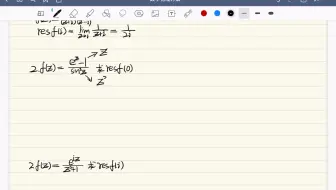 res f(i) = lim z→i 1/(z+i) = 1/2i
2. f(z) = (e^z-1)/sin z 求 res f(0)
z
z
2 f(z) = e^iz/(z²+1) 求 res f(i)